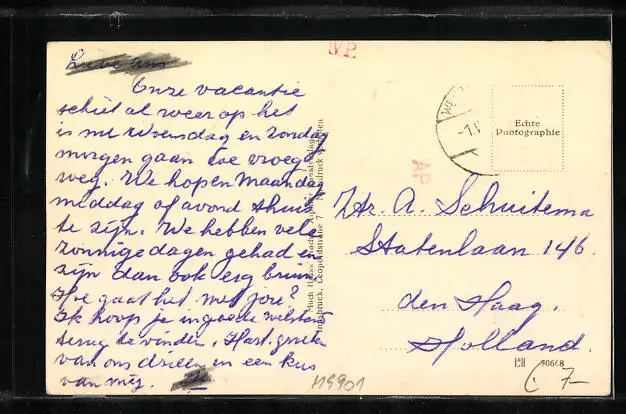 Lieve
Onze vacantie
schiet al weer op het
is nu Woensdag en Zondag
morgen gaan we vroeg
weg. We hopen Maandag
middag of avond thuis
te zijn. We hebben vele
zonnige dagen gehad en
zijn dan ook erg bruin.
Hoe gaat het met jou?
Ik hoop je in goede welstand
terug te vinden. Hart. groeten
van ons drieën en een kus
van mij.
Innsbruck, Leopoldstraße
AP
AP
Echte
Photographie
Zr. A. Schuitema
Statenlaan 146.
den Haag.
Holland.
70668
119901
7-